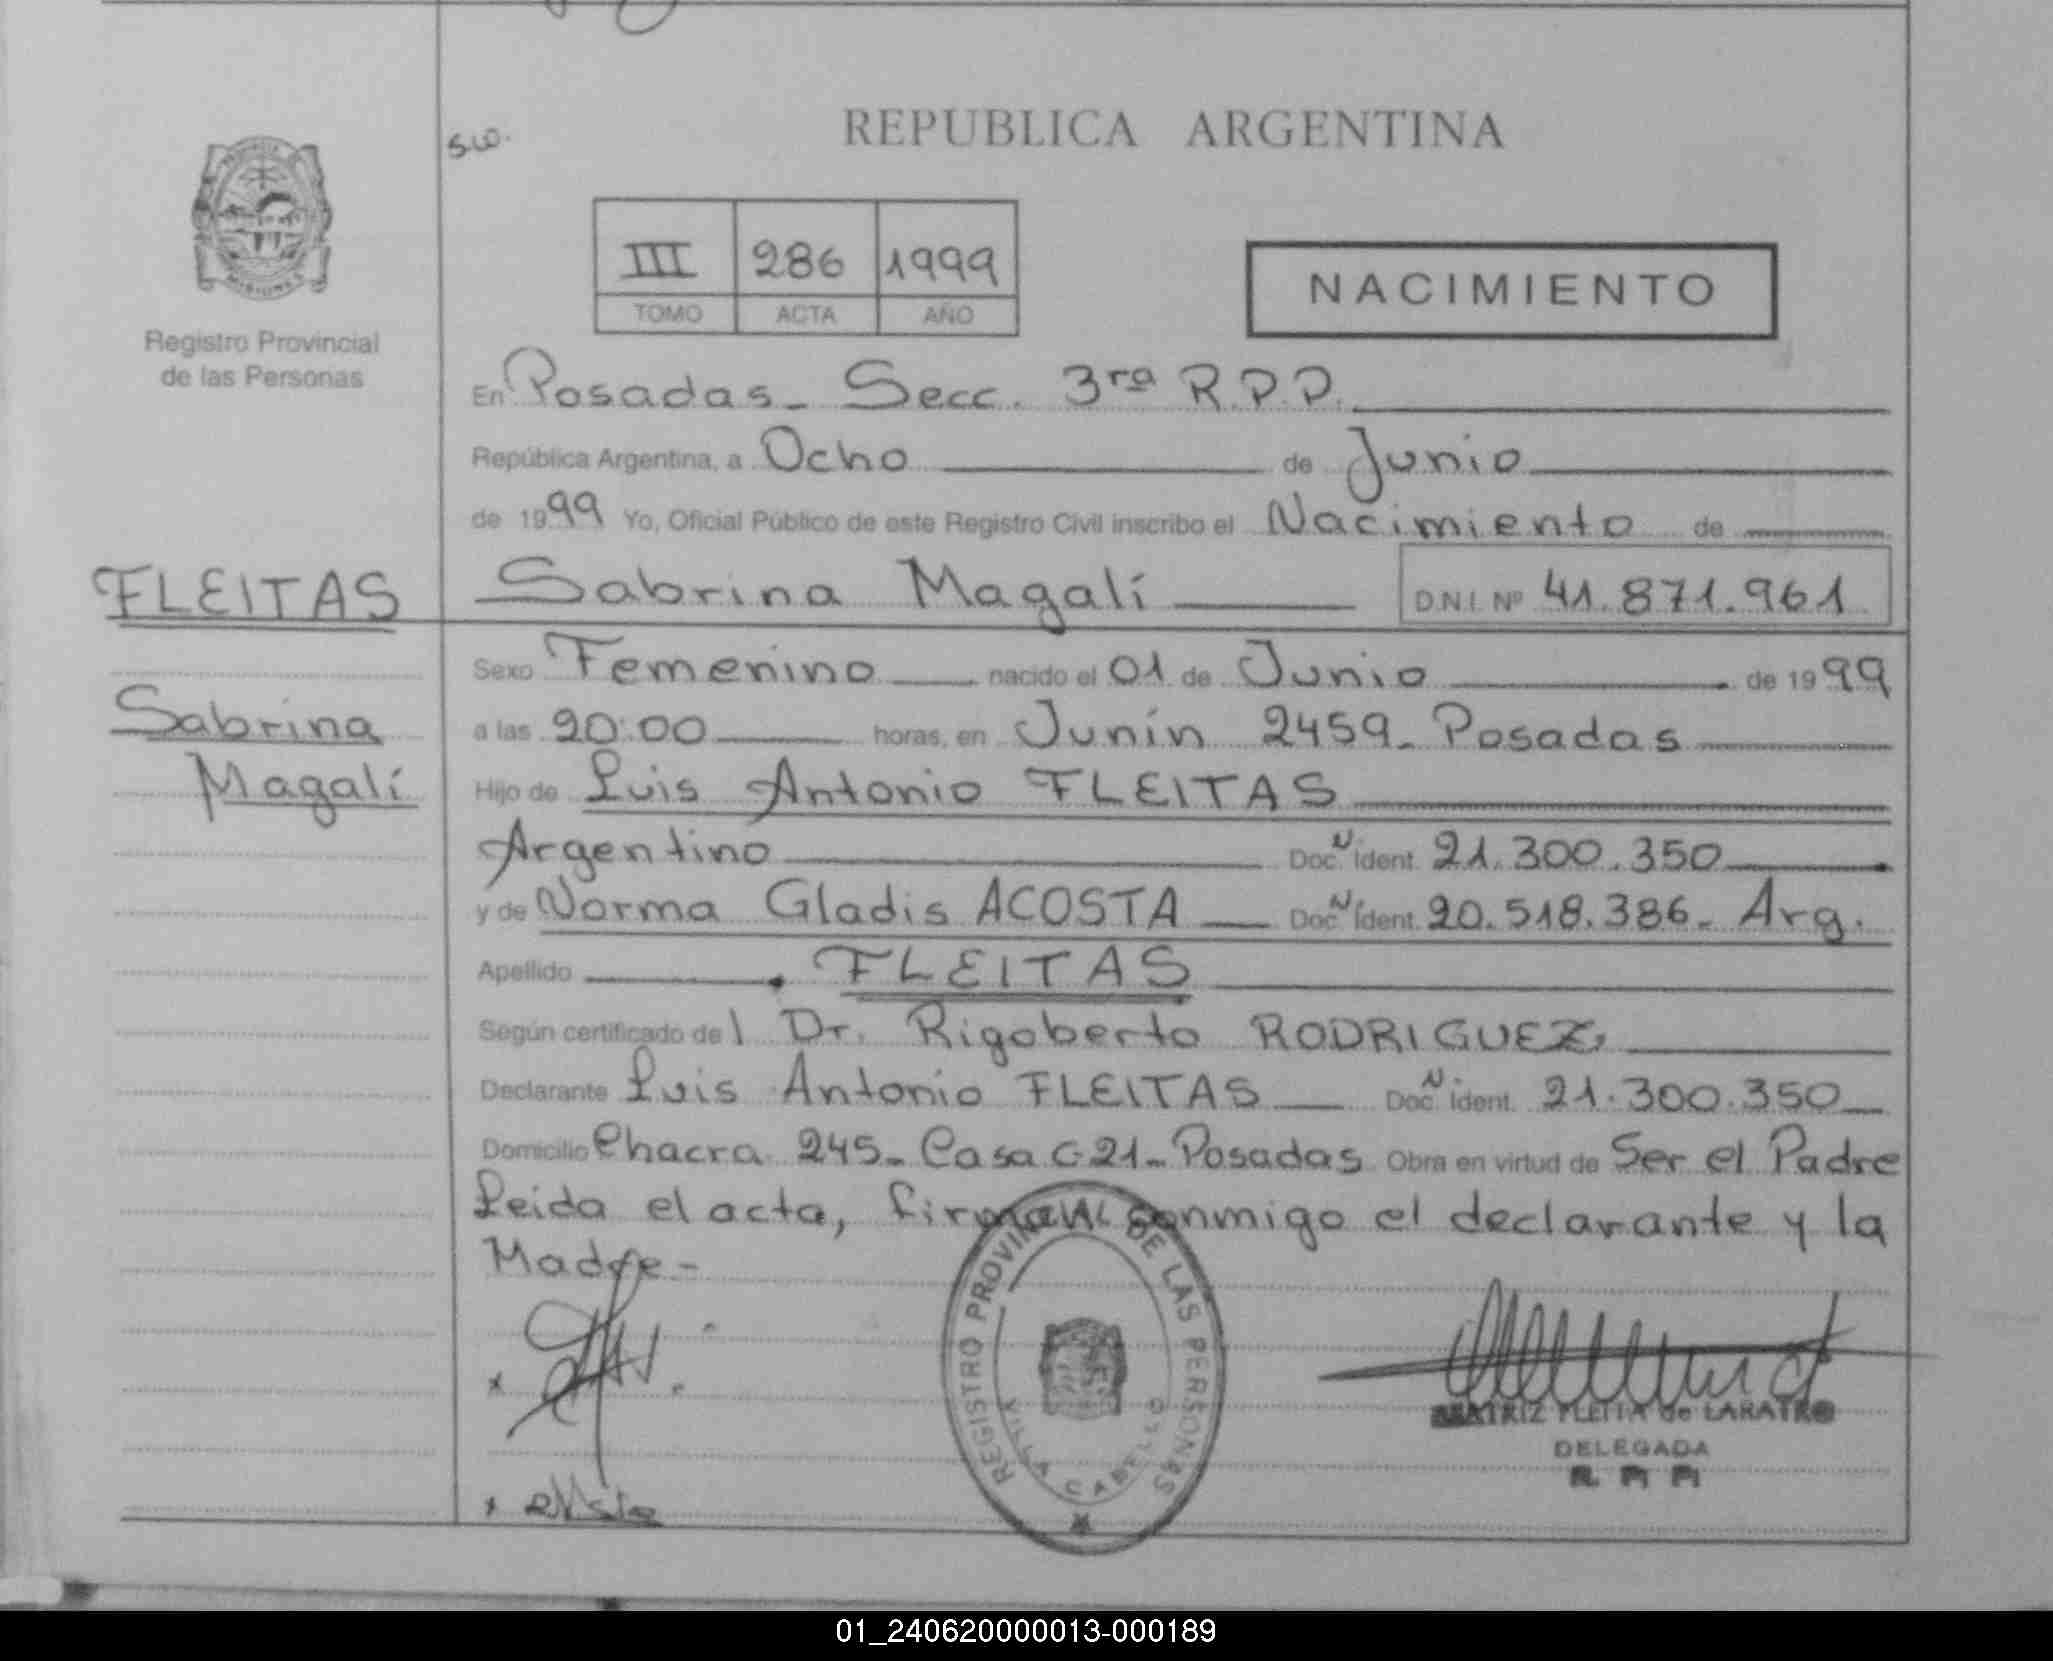 REPUBLICA ARGENTINA
s.w.
III 286 1999
TOMO ACTA AÑO
NACIMIENTO
MISIONES
Registro Provincial
de las Personas
En Posadas - Secc. 3ra R.P.P.
República Argentina, a Ocho de Junio
de 1999 Yo, Oficial Público de este Registro Civil inscribo el Nacimiento de
FLEITAS
Sabrina Magalí D.N.I. Nº 41.871.961
Sexo Femenino nacido el 01 de Junio de 1999
Sabrina
Magalí
a las 20:00 horas, en Junín 2459 - Posadas
Hijo de Luis Antonio FLEITAS
Argentino Doc. N Ident. 21.300.350
y de Norma Gladis ACOSTA Doc. N Ident. 20.518.386 - Arg.
Apellido FLEITAS
Según certificado del Dr. Rigoberto RODRIGUEZ
Declarante Luis Antonio FLEITAS Doc. N Ident. 21.300.350
Domicilio Chacra 245 - Casa C-21 - Posadas Obra en virtud de Ser el Padre
Leida el acta, firman conmigo el declarante y la
Madre -
REGISTRO PROVINCIAL DE LAS PERSONAS
VILLA CABELLO
BEATRIZ FLEITA de LARATRO
DELEGADA
01_240620000013-000189